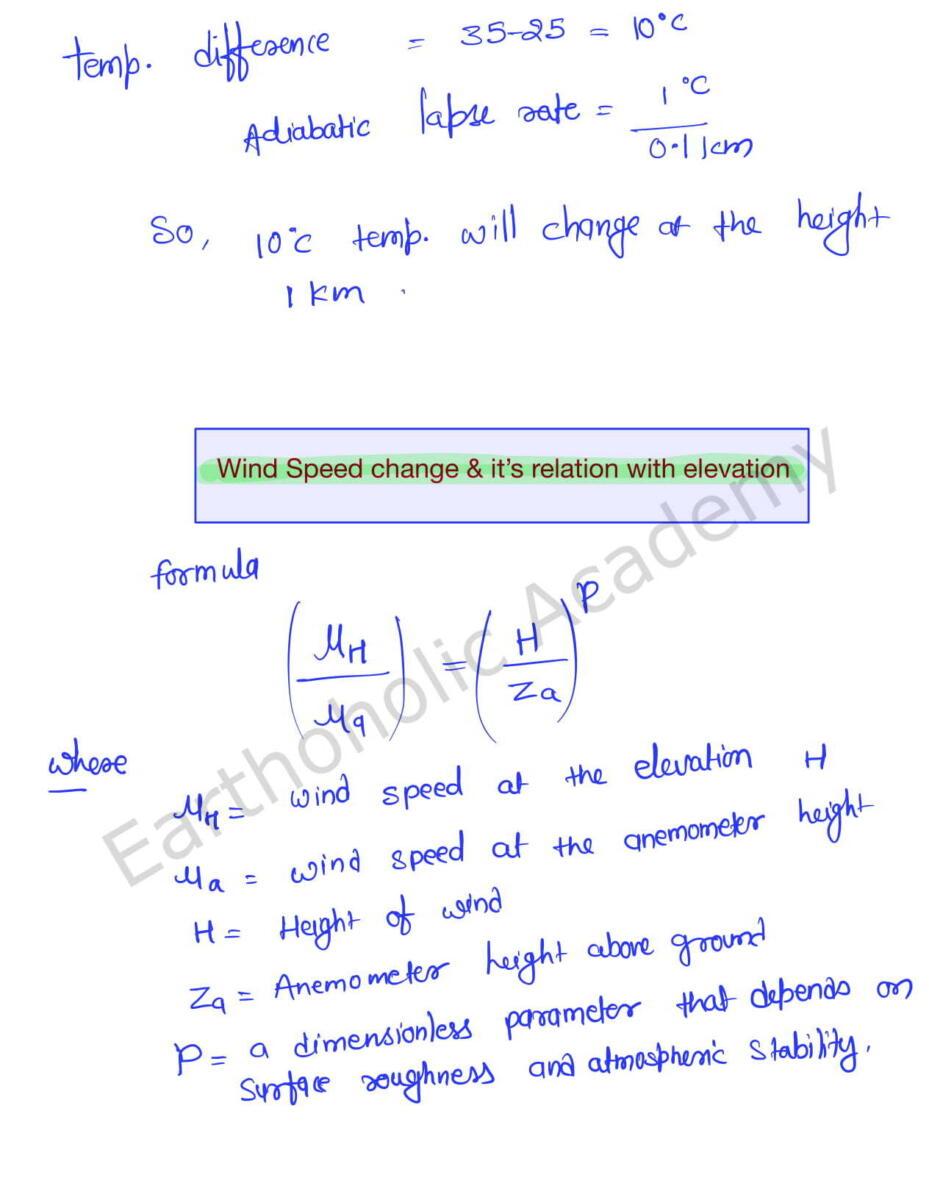 temp. difference = 35-25 = 10°C
Adiabatic lapse rate = 1°C / 0.1 km
So, 10°C temp. will change at the height
1 km.
Wind Speed change & it's relation with elevation
formula
(μH / μa) = (H / Za)^P
where
μH = wind speed at the elevation H
μa = wind speed at the anemometer height
H = Height of wind
Za = Anemometer height above ground
P = a dimensionless parameter that depends on
surface roughness and atmospheric stability.
Earthoholic Academy